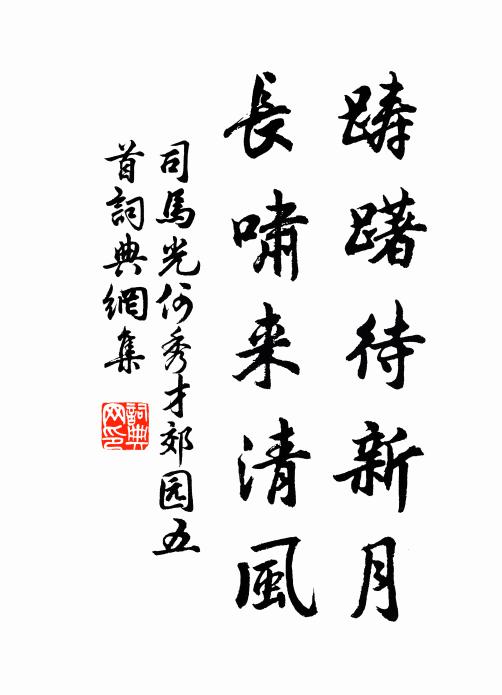 踌躇待新月
長嘯来清風
司馬光何秀才郊园五
首詞典網集
詞典
网印